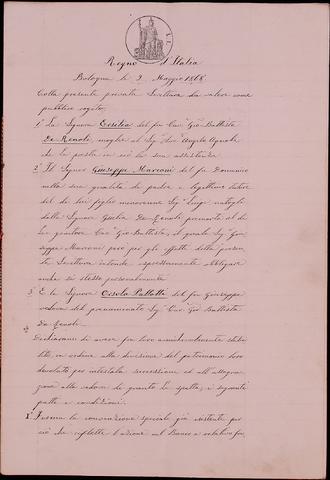 Regno d'Italia
Bologna li 2 Maggio 1868.
Colla presente privata Scrittura da valere come
pubblico rogito.
1º La Signora Ersilia del fu Cav. Gio: Battista
De Renoli, moglie al Sig. Angelo Agnoli
che la presta in ciò la sua assistenza
2º Il Signor Giuseppe Marconi del fu Domenico
nella sua qualità di padre e legittimo tutore
del di lui figlio minorenne Sig. Luigi natogli
dalla Signora Giulia De Renoli premorta al di
lei genitore Cav. Gio: Battista, il quale Sig. Giu-
seppe Marconi però per gli effetti della presen
te Scrittura intende espressamente obbligare
anche sè stesso personalmente
3º E la Signora Orsola Pallotti del fu Giuseppe
vedova del prenominato Sig. Cav. Gio: Battista
De Renoli.
Dichiarano di avere fra loro amichevolmente stabi
lito, in ordine alla divisione del patrimonio loro
devoluto per intestata successione ed all'assegna
zione alla vedova di quanto le spetta, i seguenti
patti e condizioni.
1º Ferma la convenzione speciale già esistente per
ciò che riflette l'azione sul Banco e relativa